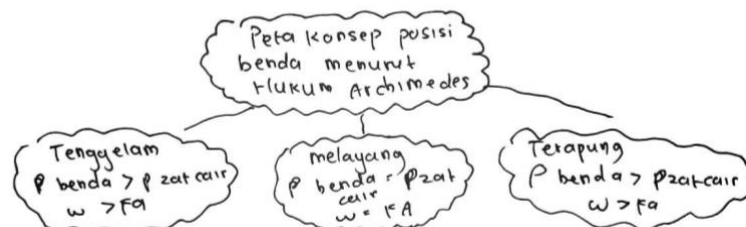 Peta konsep posisi
benda menurut
Hukum Archimedes
Tenggelam
ρ benda > ρ zat cair
w > Fa
melayang
ρ benda = ρ zat
cair
w = FA
Terapung
ρ benda > ρ zat cair
w > Fa